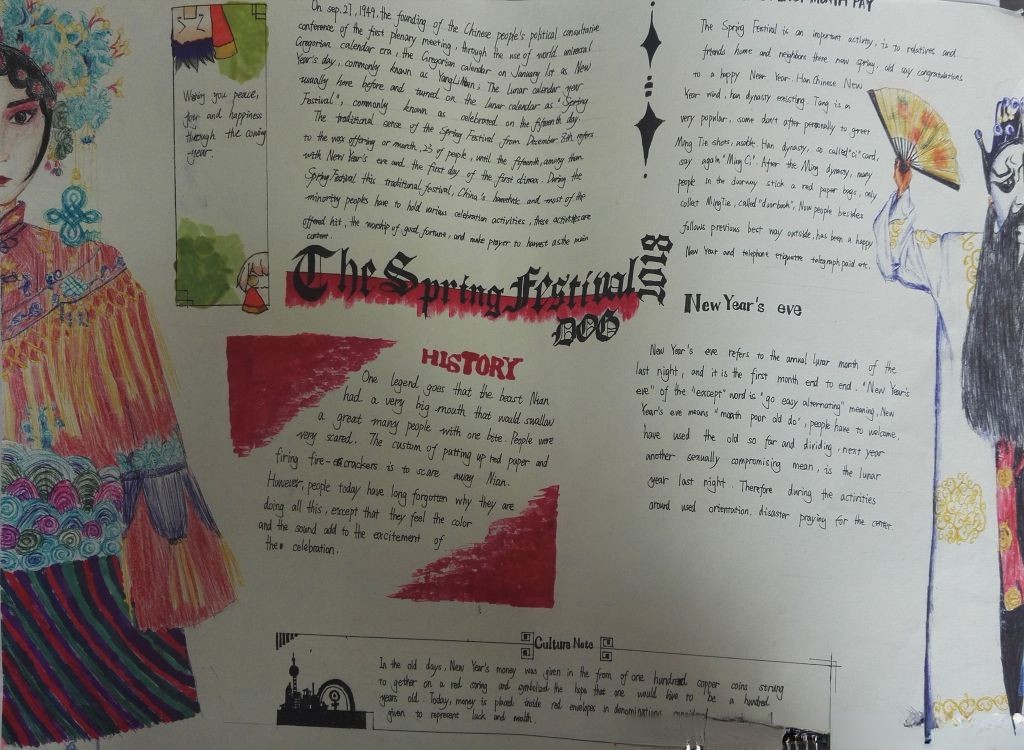 Wishing you peace,
joy and happiness
through the coming
year.
On sep. 27, 1949, the founding of the Chinese people's political consultative
conference of the first plenary meeting, through the use of world universal
Gregorian calendar era, the Gregorian calendar on January 1st as New
Year's day, commonly known as YangLiNian; The lunar calendar year
usually here before and turned on the lunar calendar as "Spring
Festival", commonly known as celebrated on the fifteenth day.
The traditional sense of the Spring Festival from December 8th refers
to the wax offering or march, 23 of people, until the fifteenth, among them
with New Year's eve and the first day of the first climax. During the
Spring Festival this traditional festival, China's and most of the
minority peoples have to hold various celebration activities, these activities are
offered hist, the worship of good fortune, and make prayer to harvest as the main
content.
The Spring Festival
2018
DOG
HISTORY
One legend goes that the beast Nian
had a very big mouth that would swallow
a great many people with one bite. People were
very scared. The custom of putting up red paper and
firing fire-crackers is to scare away Nian.
However, people today have long forgotten why they are
doing all this, except that they feel the color
and the sound add to the excitement of
the celebration.
MONTH PAY
The Spring Festival is an important activity, is to relatives and
friends home and neighbors there new spring, old say congratulations
to a happy New Year. Han Chinese New
Year wind, han dynasty existing. Tang is a
very popular, some don't after personally to greet
Ming Tie shots, usable. Han dynasty, so called "ci" card,
say again "Ming Ci". After the Ming dynasty, many
people in the doorway stick a red paper bags, only
collect MingTie, called "door book", Now people besides
follows previous best way outside, has been a happy
New Year and telephone etiquette telegraph paid etc.
New Year's eve
New Year's eve refers to the annual lunar month of the
last night, and it is the first month end to end. "New Year's
eve" of the "except" word is "go easy alternating" meaning, New
Year's eve means "month poor old do", people have to welcome,
have used the old so far and dividing, next year
another sexually compromising mean, is the lunar
year last night. Therefore during the activities
around used orientation. disaster praying for the center.
Culture Note
In the old days, New Year's money was given in the from of one hundred copper coins strung
to gether on a red soring and symbolized the hope that one would live to be a hundred
years old. Today, money is placed inside red envelopes in denominations considered
given to represent luck and wealth.